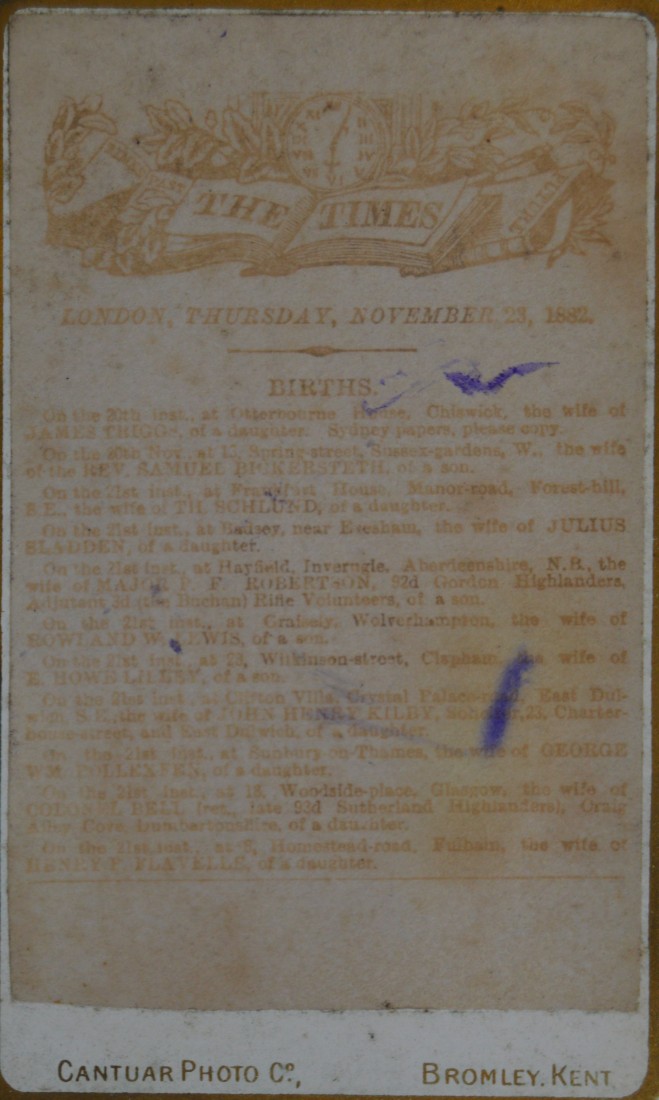 THE TIMES
LONDON, THURSDAY, NOVEMBER 23, 1882.
BIRTHS.
On the 20th inst., at Otterbourne House, Chiswick, the wife of
JAMES TRIGGS, of a daughter. Sydney papers, please copy.
On the 20th Nov., at 15, Spring-street, Sussex-gardens, W., the wife
of the REV. SAMUEL BICKERSTETH, of a son.
On the 21st inst., at Frankfurt House, Manor-road, Forest-hill,
S.E., the wife of TH. SCHLUND, of a daughter.
On the 21st inst., at Badsey, near Evesham, the wife of JULIUS
SLADDEN, of a daughter.
On the 21st inst., at Hayfield, Inverugie, Aberdeenshire, N.B., the
wife of MAJOR P. F. ROBERTSON, 92d Gordon Highlanders,
Adjutant 3d (the Buchan) Rifle Volunteers, of a son.
On the 21st inst., at Graisely, Wolverhampton, the wife of
ROWLAND W. LEWIS, of a son.
On the 21st inst., at 23, Wilkinson-street, Clapham, the wife of
E. HOWE LILLEY, of a son.
On the 21st inst., at Clifton Villa, Crystal Palace-road, East Dul-
wich, S.E., the wife of JOHN HENRY KILBY, 23, Charter-
house-street, and East Dulwich, of a daughter.
On the 21st inst., at Sunbury-on-Thames, the wife of GEORGE
WM. POLLEXFEN, of a daughter.
On the 21st inst., at 18, Woodside-place, Glasgow, the wife of
COLONEL BELL (ret., late 93d Sutherland Highlanders), Craig
Cove, Dumbartonshire, of a daughter.
On the 21st inst., at 8, Homestead-road, Fulham, the wife of
HENRY F. FLAVELLE, of a daughter.
CANTUAR PHOTO Co., BROMLEY. KENT